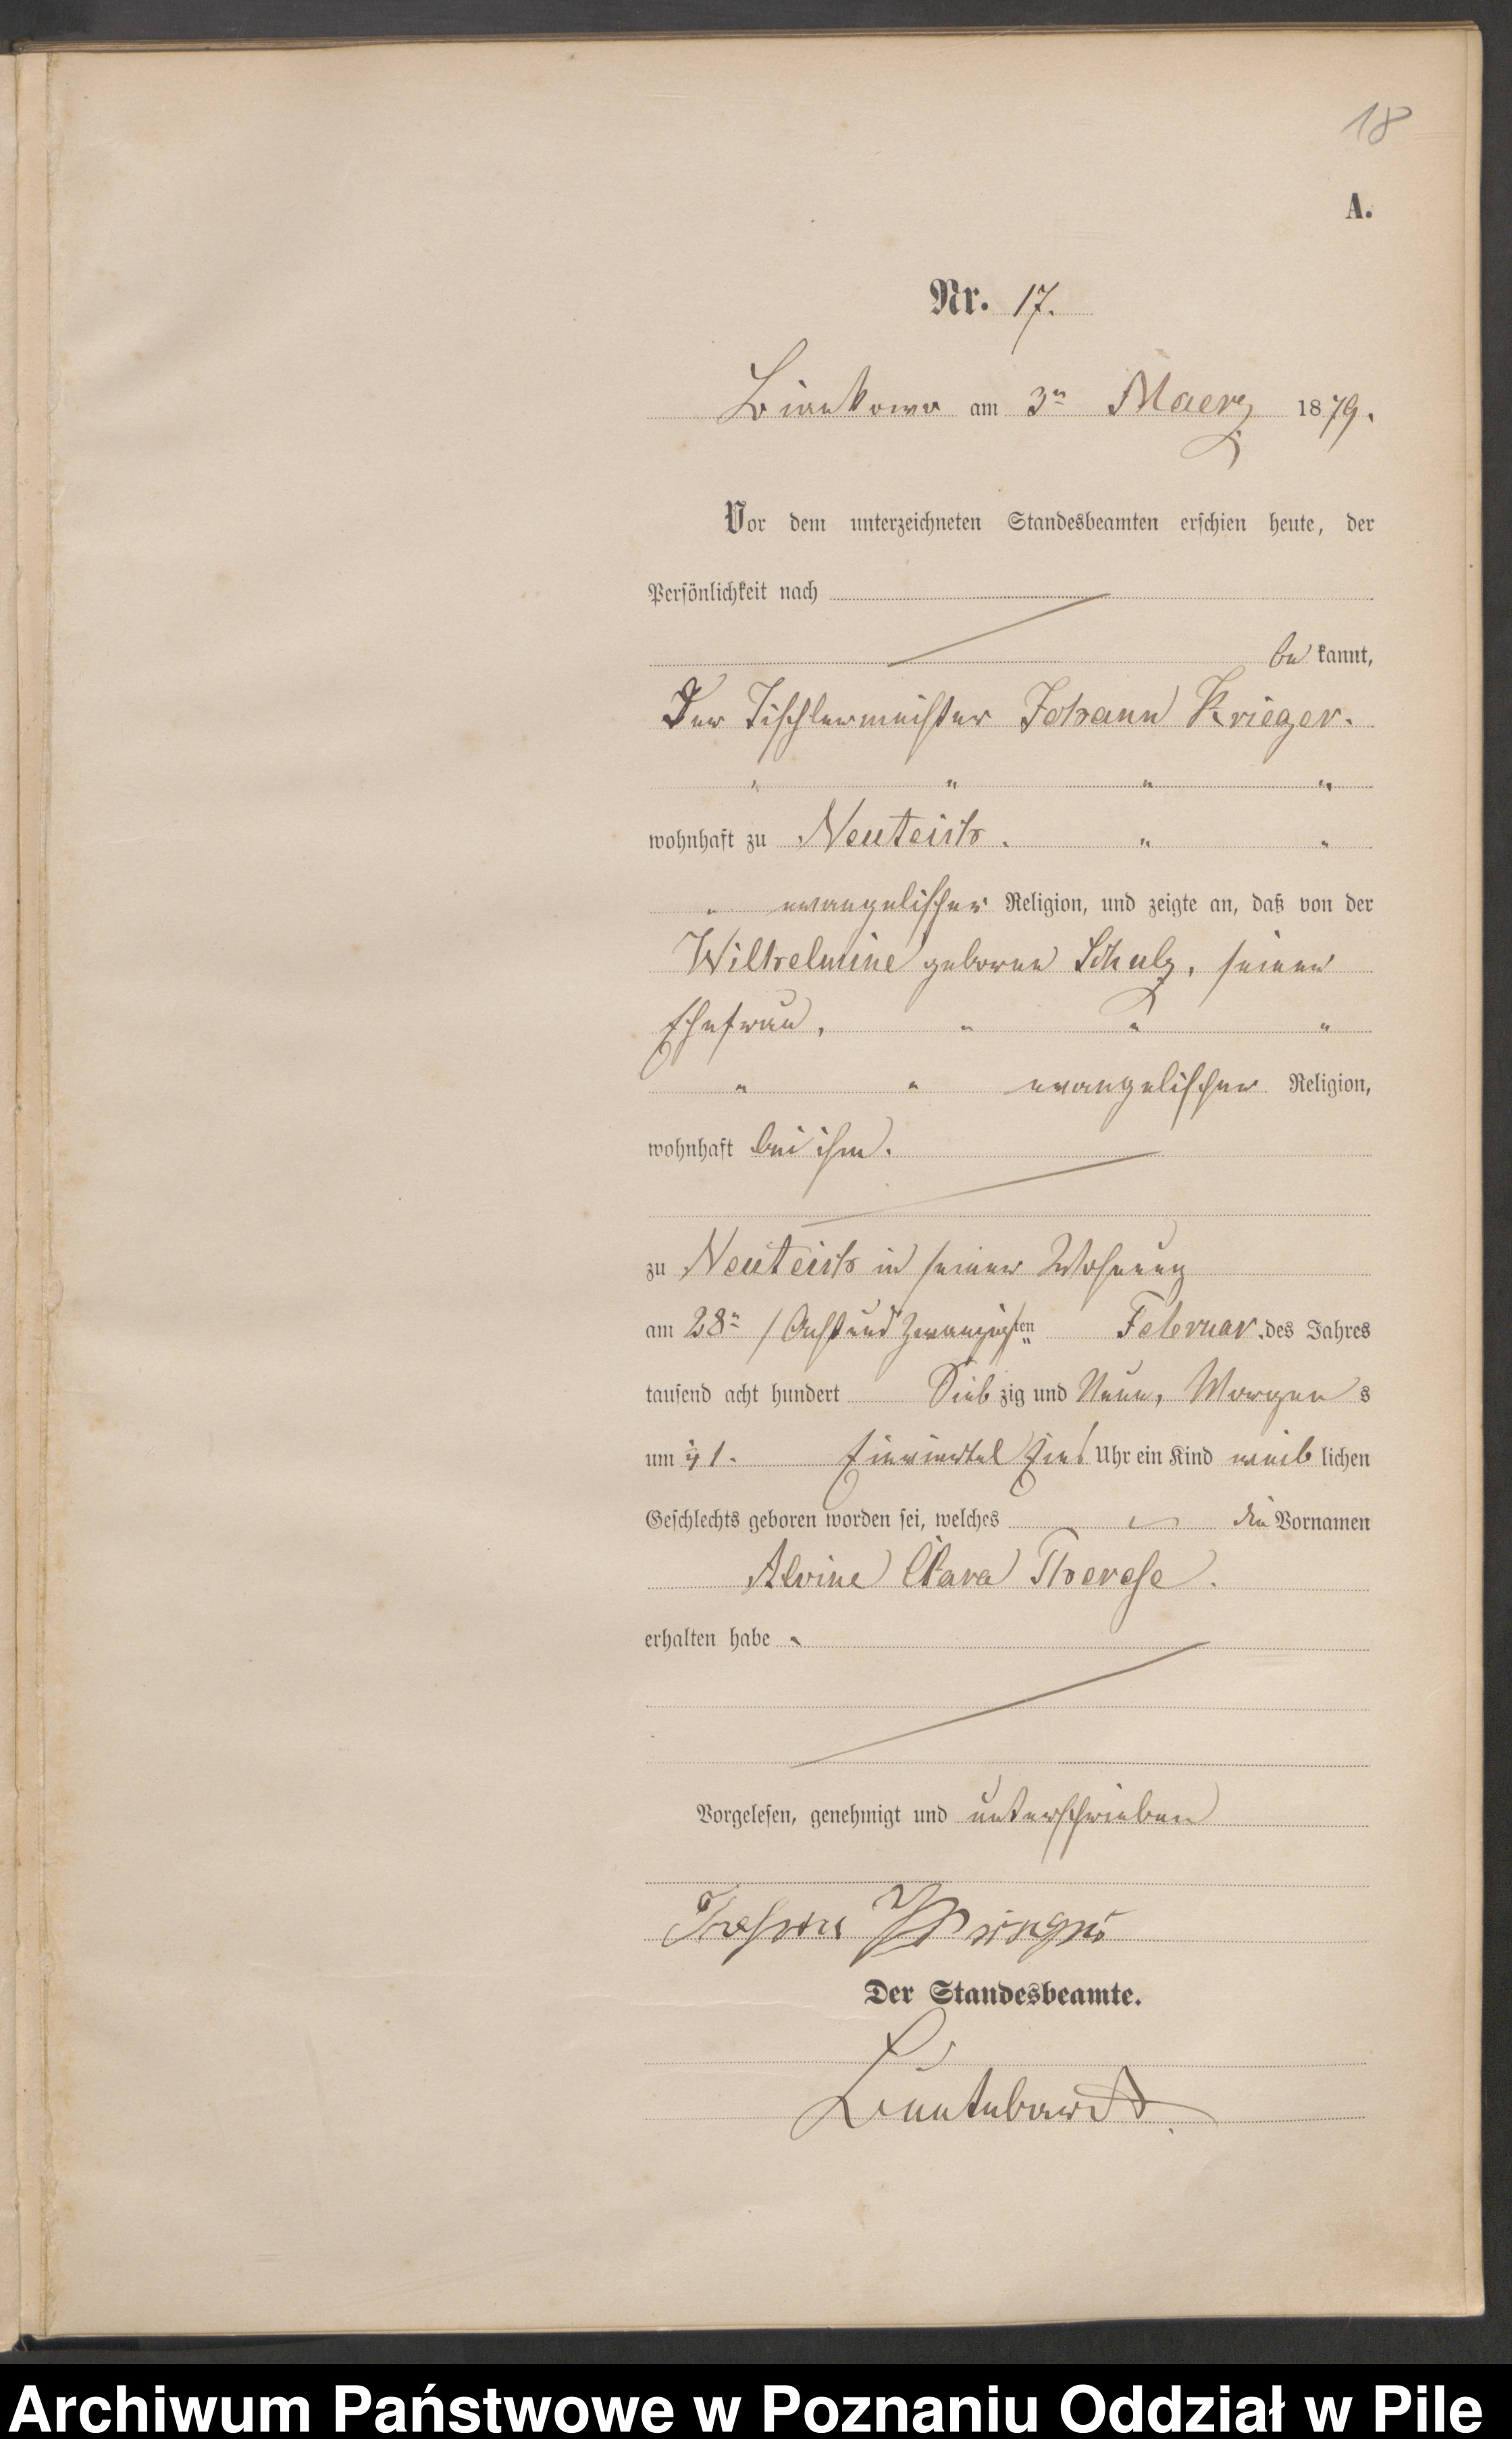 18
A.
Nr. 17.
am 3n Maerz 1879.
Vor dem unterzeichneten Standesbeamten erschien heute, der
Persönlichkeit nach
be kannt,
Der Tischlermeister Johann Krieger.
" " " "
wohnhaft zu Neuteich. " "
" evangelischer Religion, und zeigte an, daß von der
Wilhelmine geborne Schulz, seiner
Ehefrau, " " "
" " evangelischer Religion,
wohnhaft bei ihm.
zu Neuteich in seiner Wohnung
am 28n / Acht und Zwanzigsten Februar des Jahres
tausend acht hundert Sieb zig und Neun, Morgen s
um ¼ 1. Einviertel Eins Uhr ein Kind weib lichen
Geschlechts geboren worden sei, welches die Vornamen
Alvine Clara Therese.
erhalten habe
Vorgelesen, genehmigt und unterschrieben
Johann Krieger
Der Standesbeamte.